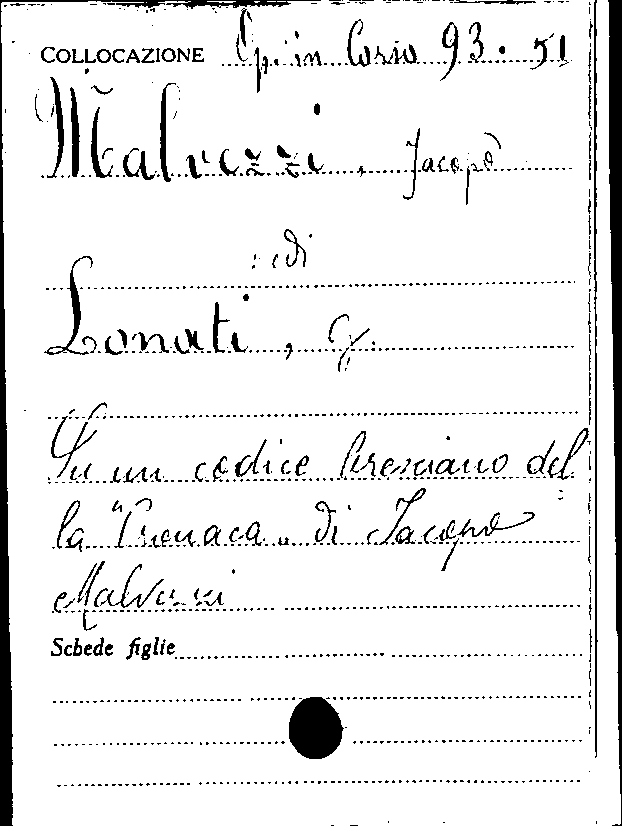 COLLOCAZIONE Op. in Corso 93. 51
Malvezzi, Jacopo
: vedi
Lonati, G.
Su un codice bresciano del
la "Cronaca„ di Jacopo
Malvezzi
Schede figlie